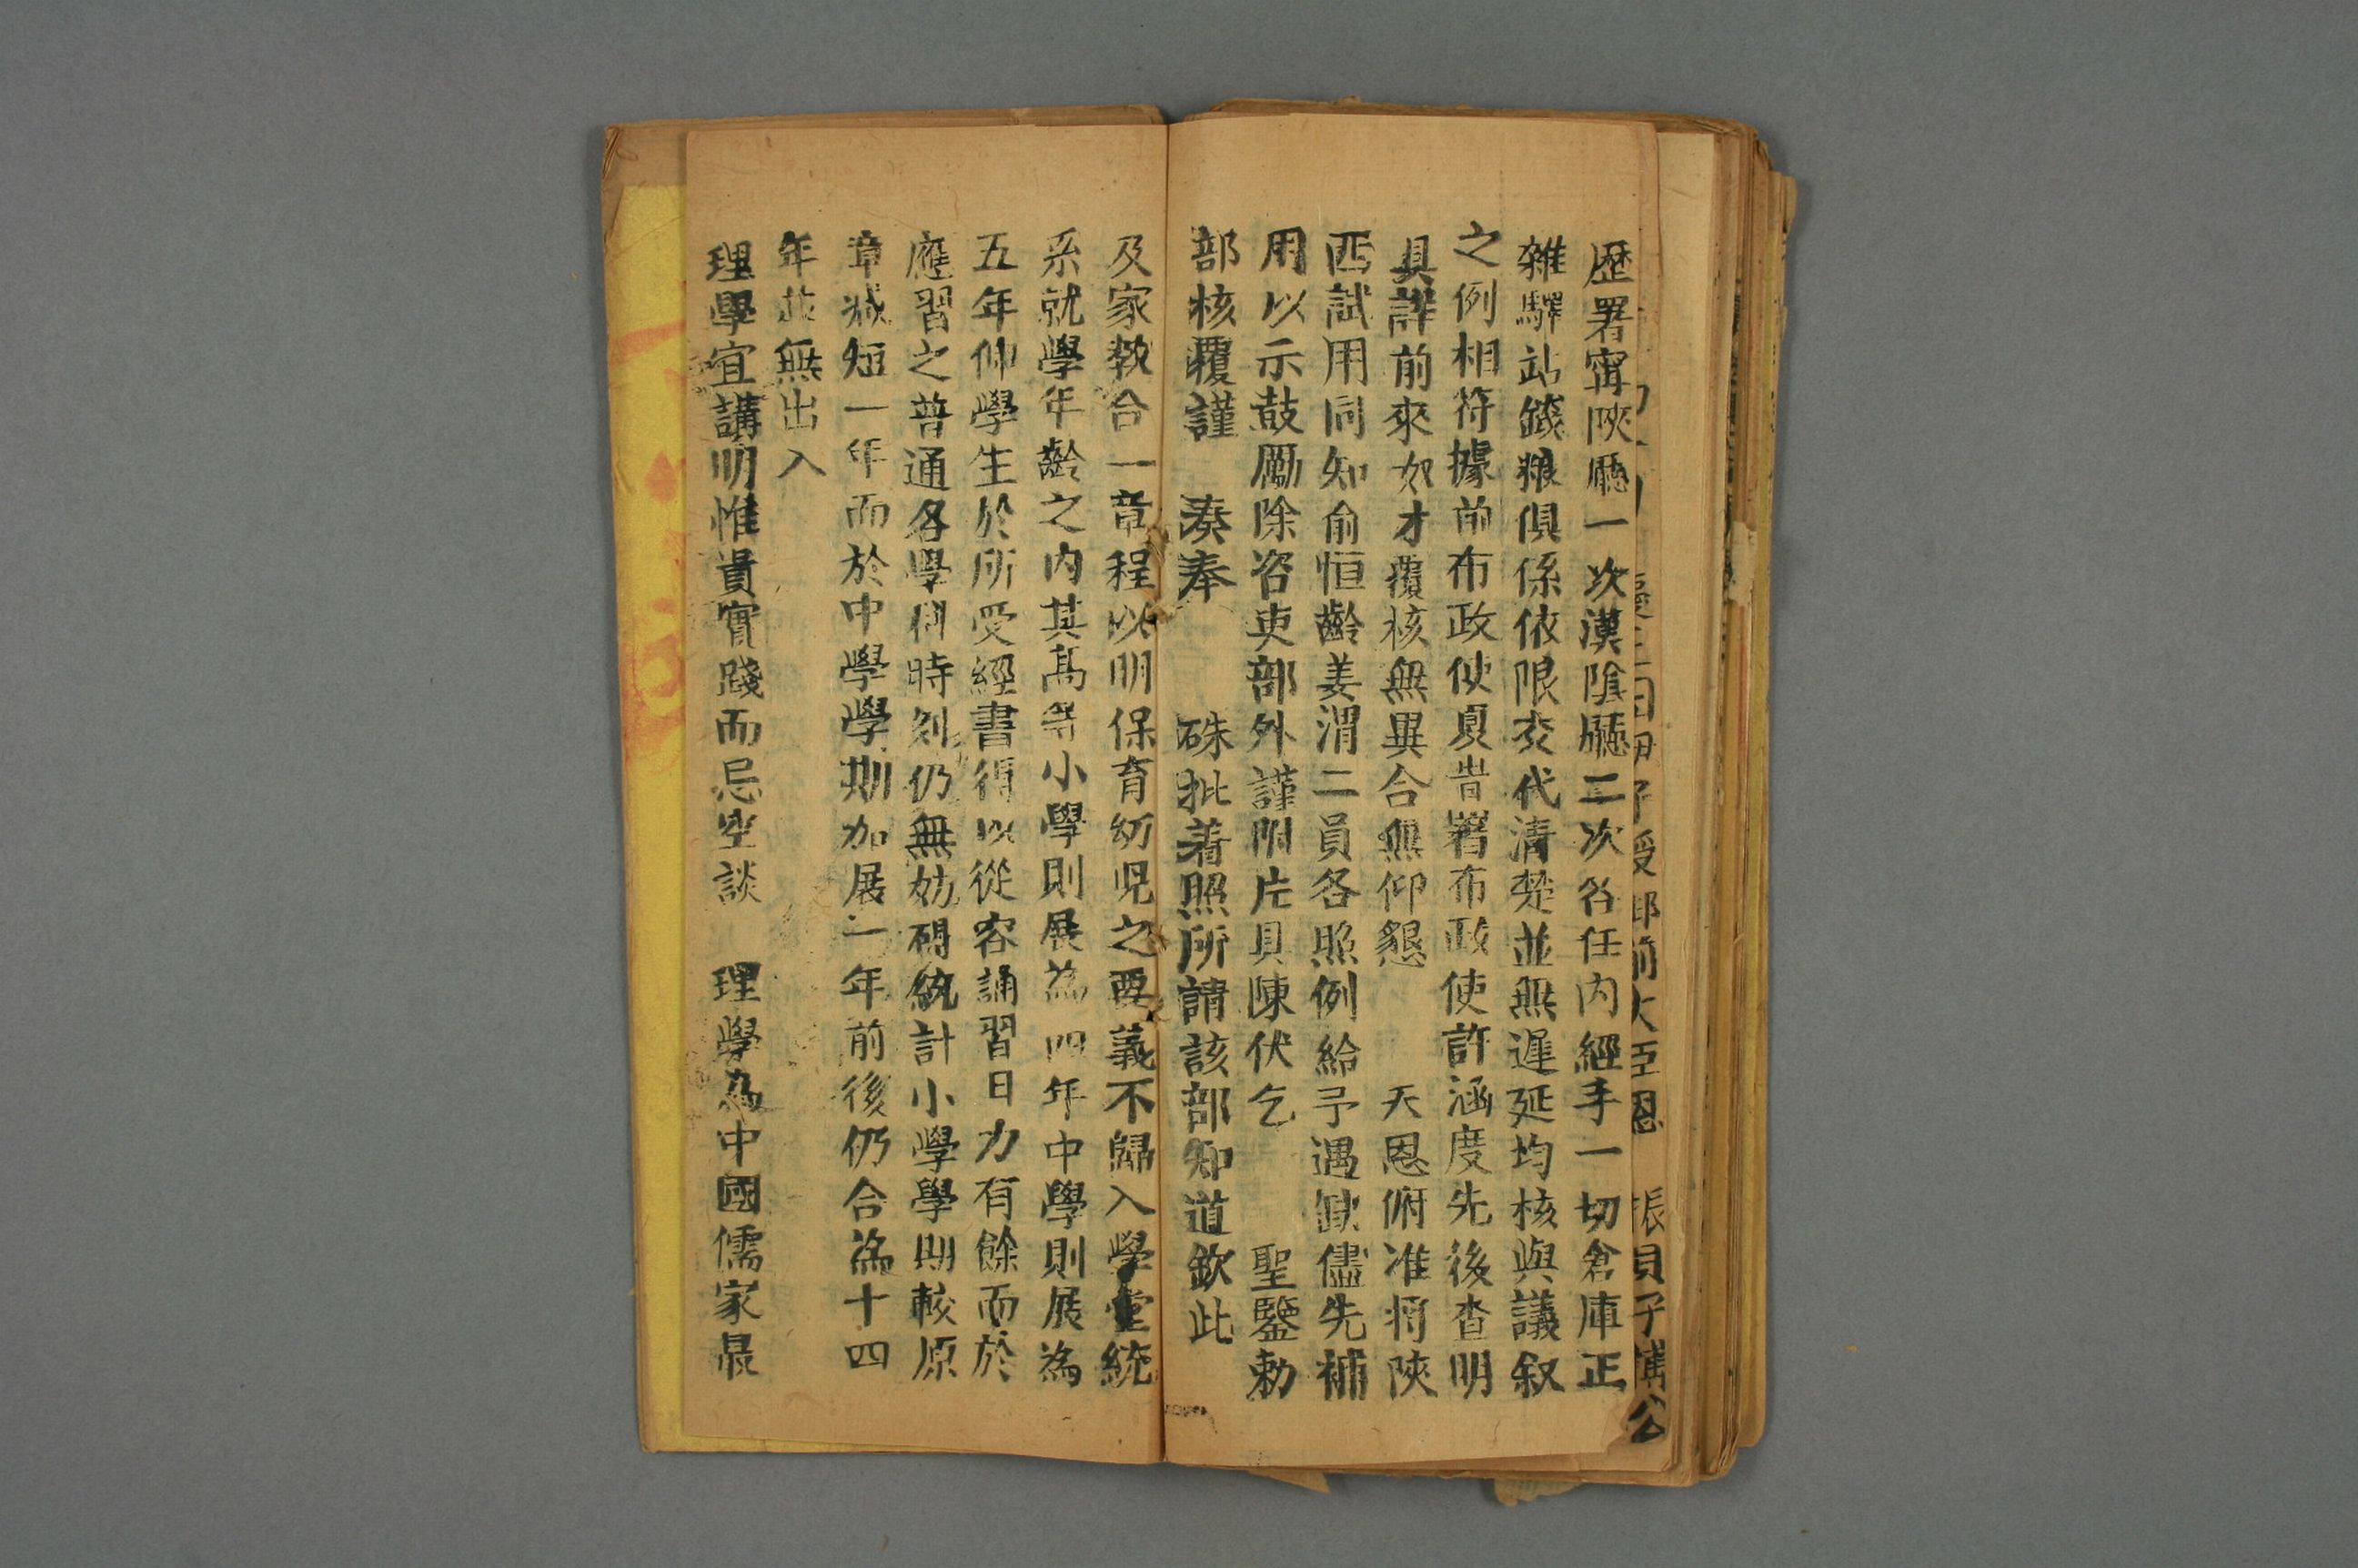 歷署甯陝廳一次漢陰廳二次各任內經手一切倉庫正
雜驛站錢粮俱係依限交代清楚並無遲延均核與議叙
之例相符據前布政使夏旹署布政使許涵度先後查明
具詳前來奴才覆核無異合無仰懇　天恩俯准將陝
西試用同知俞恒齡姜渭二員各照例給予遇缺儘先補
用以示鼓勵除咨吏部外謹附片具陳伏乞　聖鑒勅
部核覆謹　湊奉　硃批着照所請該部知道欽此
及家教合一章程以明保育幼児之要義不歸入學堂統
系就學年齡之內其高等小學則展為四年中學則展為
五年仰學生於所受經書得以從容誦習日力有餘而於
應習之普通各學科時刻仍無妨碍統計小學學期較原
章减短一年而於中學學期加展一年前後仍合為十四
年並無出入
理學宜講明惟貴實踐而忌空談　理學為中國儒家最